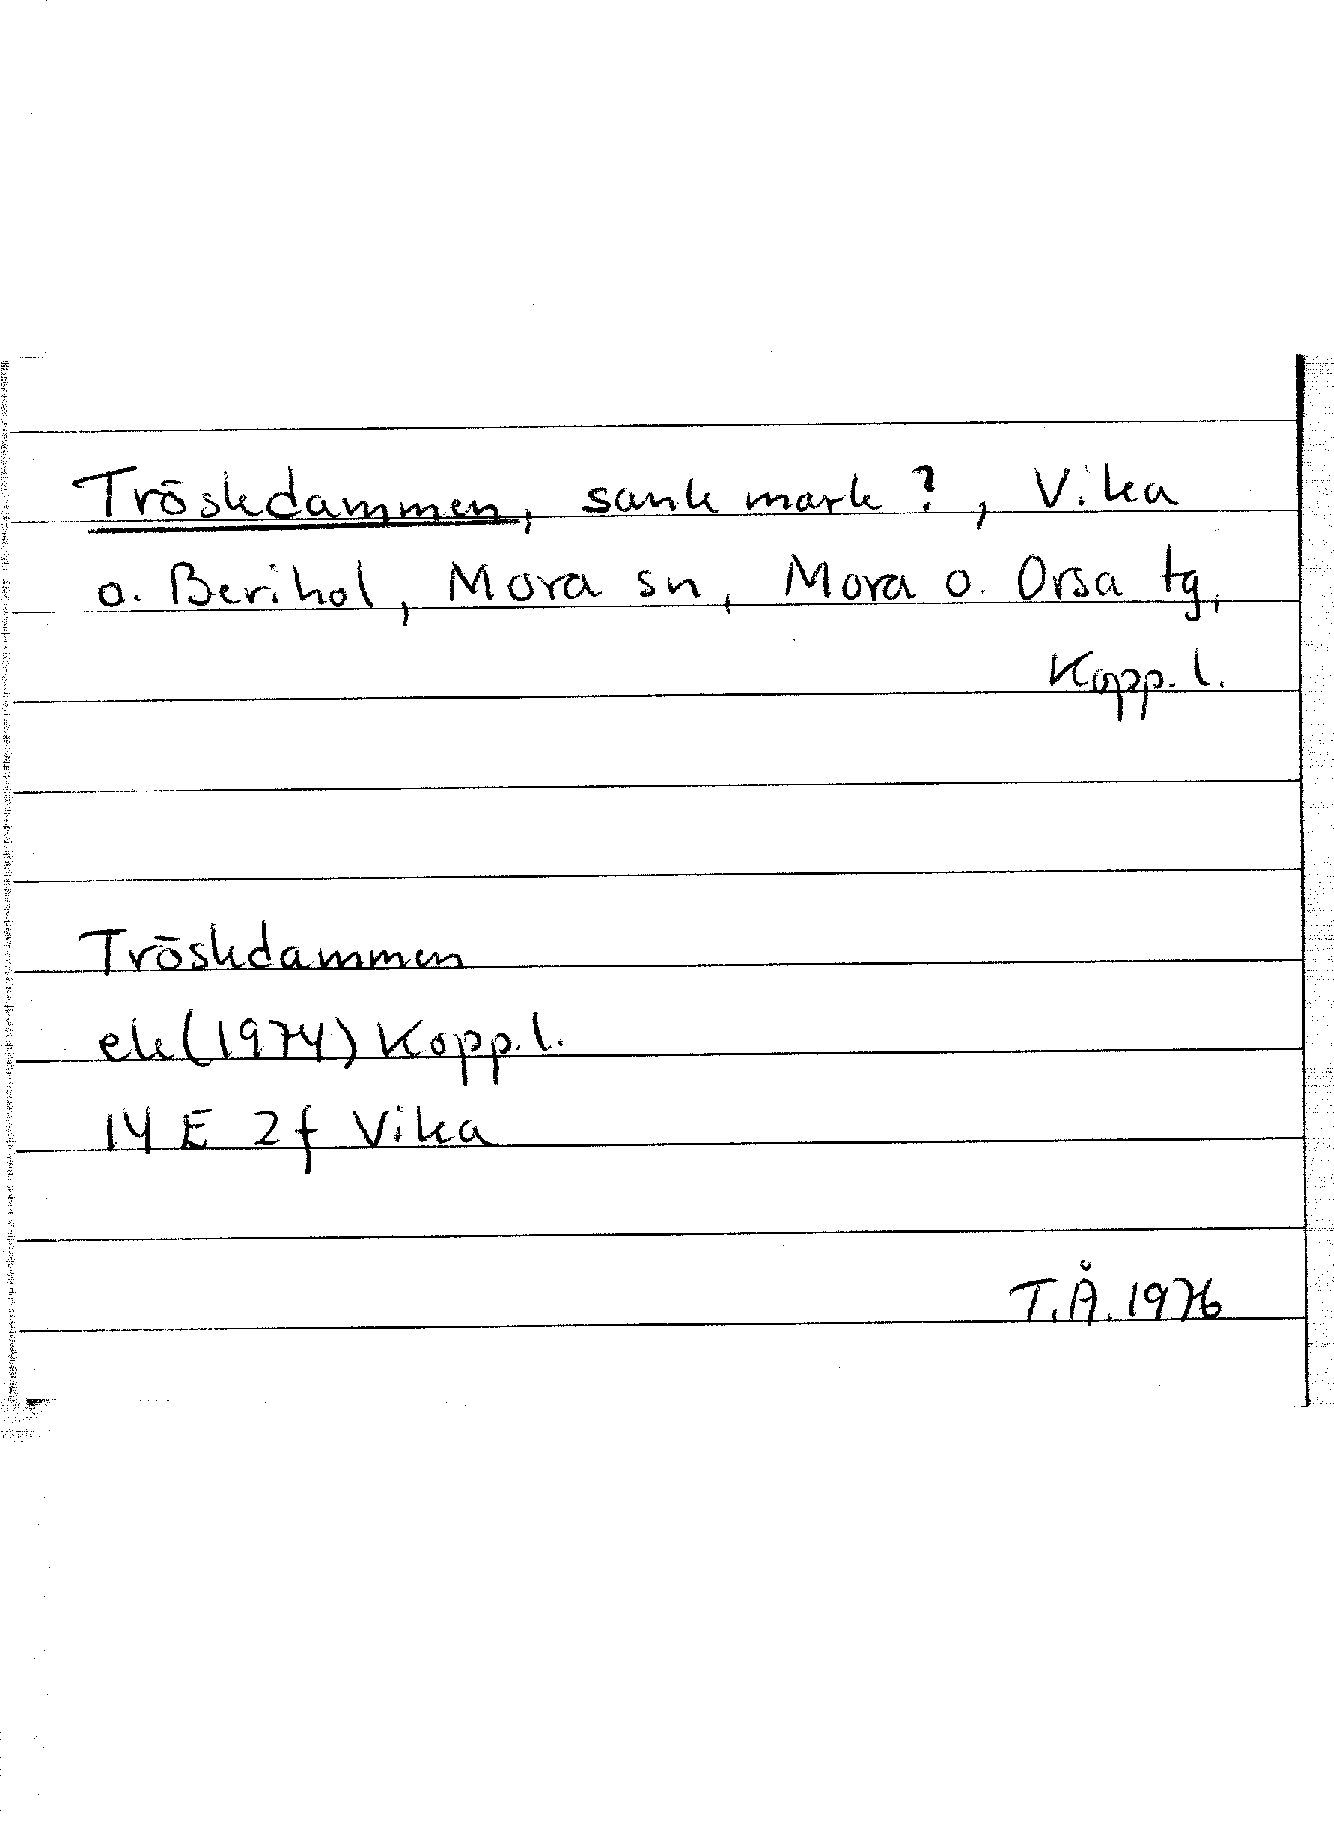 Tröskdammen, sank mark?, Vika
o. Berihol, Mora sn, Mora o. Orsa tg,
Kopp. l.
Tröskdammen
ek (1974) Kopp. l.
14 E 2f Vika
T.Å. 1976